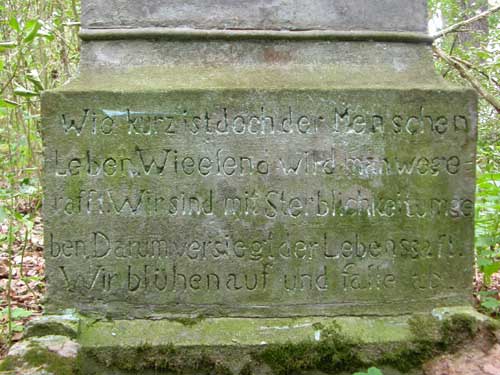 Wie kurz ist doch der Menschen
Leben. Wie elend wird man wege
rafft. Wir sind mit Sterblichkeit umge
ben, Darum versiegt der Lebenssaft.
Wir blühen auf und falle ab